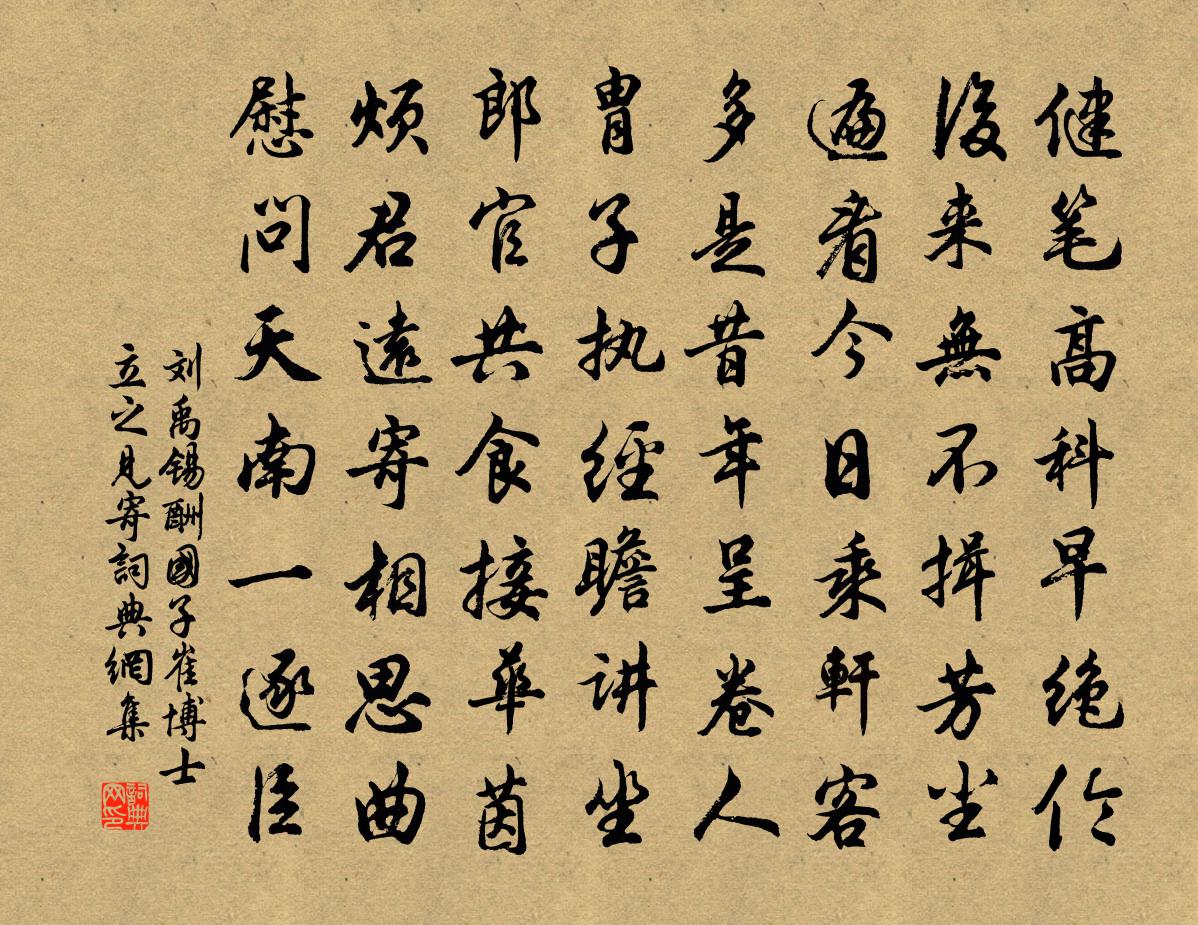 健笔高科早绝伦
後来無不揖芳尘
遍看今日乘軒客
多是昔年呈卷人
胄子执經瞻讲坐
郎官共食接華茵
烦君遠寄相思曲
慰问天南一逐臣
刘禹锡酬國子崔博士
立之見寄詞典網集
詞典网印